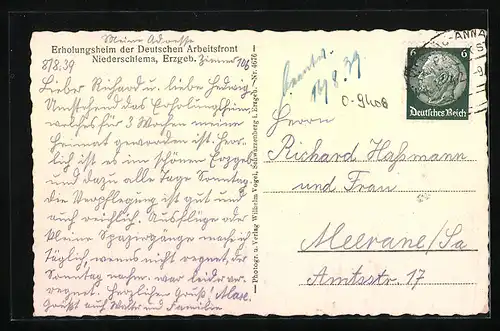 Meine Adresse
Erholungsheim der Deutschen Arbeitsfront
Niederschlema, Erzgeb. Zimmer 106
8/8.39
Lieber Richard u. liebe Hedwig,
Umstehend das Erholungsheim,
welches für 3 Wochen meine
Heimat geworden ist. Herr-
lich ist es im schönen Erzgeb.
und dazu alle Tage Sonntag.
Die Verpflegung ist gut und
auch reichlich. Ausflüge oder
kleine Spaziergänge mache ich
täglich, wenns nicht regnet, der
Sonntag nachm. war leider ver-
regnet. Herzlichen Gruß!
Grüßt auf und Familie
— Photogr. u. Verlag Wilhelm Vogel, Schwarzenberg i. Erzgeb. — Nr. 4676 —
14/8.39
0-9406
6 6
Deutsches Reich
Herrn
Richard Haßmann
und Frau
Meerane/Sa
Amtsstr. 17